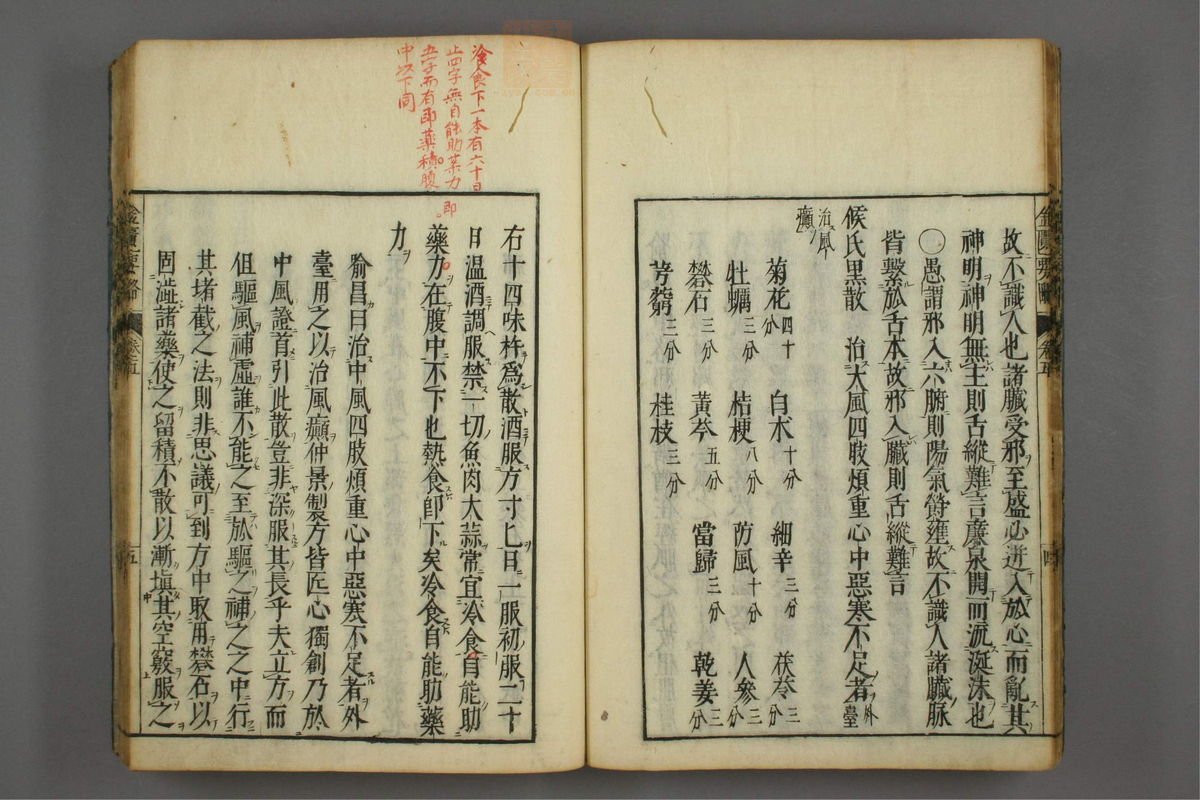 故不識人也諸臟受邪至盛必迸入於心而亂其
神明神明無主則舌縱難言廉泉開而流涎沫也
〇愚謂邪入六腑則陽氣欝壅故不識人諸臟脉
皆繫於舌本故邪入臟則舌縱難言
侯氏黑散　治大風四肢煩重心中惡寒不足者外臺
治風癲
菊花四十分　白朮十分　細辛三分　茯苓三分
牡蠣三分　桔梗八分　防風十分　人參三分
礬石三分　黃芩五分　當歸三分　乾姜三分
芎藭三分　桂枝三分
金匱要略　卷五　四
冷食下一本有六十日
止四字無自能助藥力
五字而有即藥積腹
中以下同
右十四味杵爲散酒服方寸匕日一服初服二十
日温酒調服禁一切魚肉大蒜常宜冷食自能助
藥力在腹中不下也熱食即下矣冷食自能助藥
力
喻昌曰治中風四肢煩重心中惡寒不足者外
臺用之以治風癲仲景製方皆匠心獨創乃於
中風證首引此散豈非深服其長乎夫立方而
但驅風補虛誰不能之至於驅之補之之中行
其堵截之法則非思議可到方中取用礬石以
固澁諸藥使之留積不散以漸塡其空竅服之
金匱要略　卷五　五